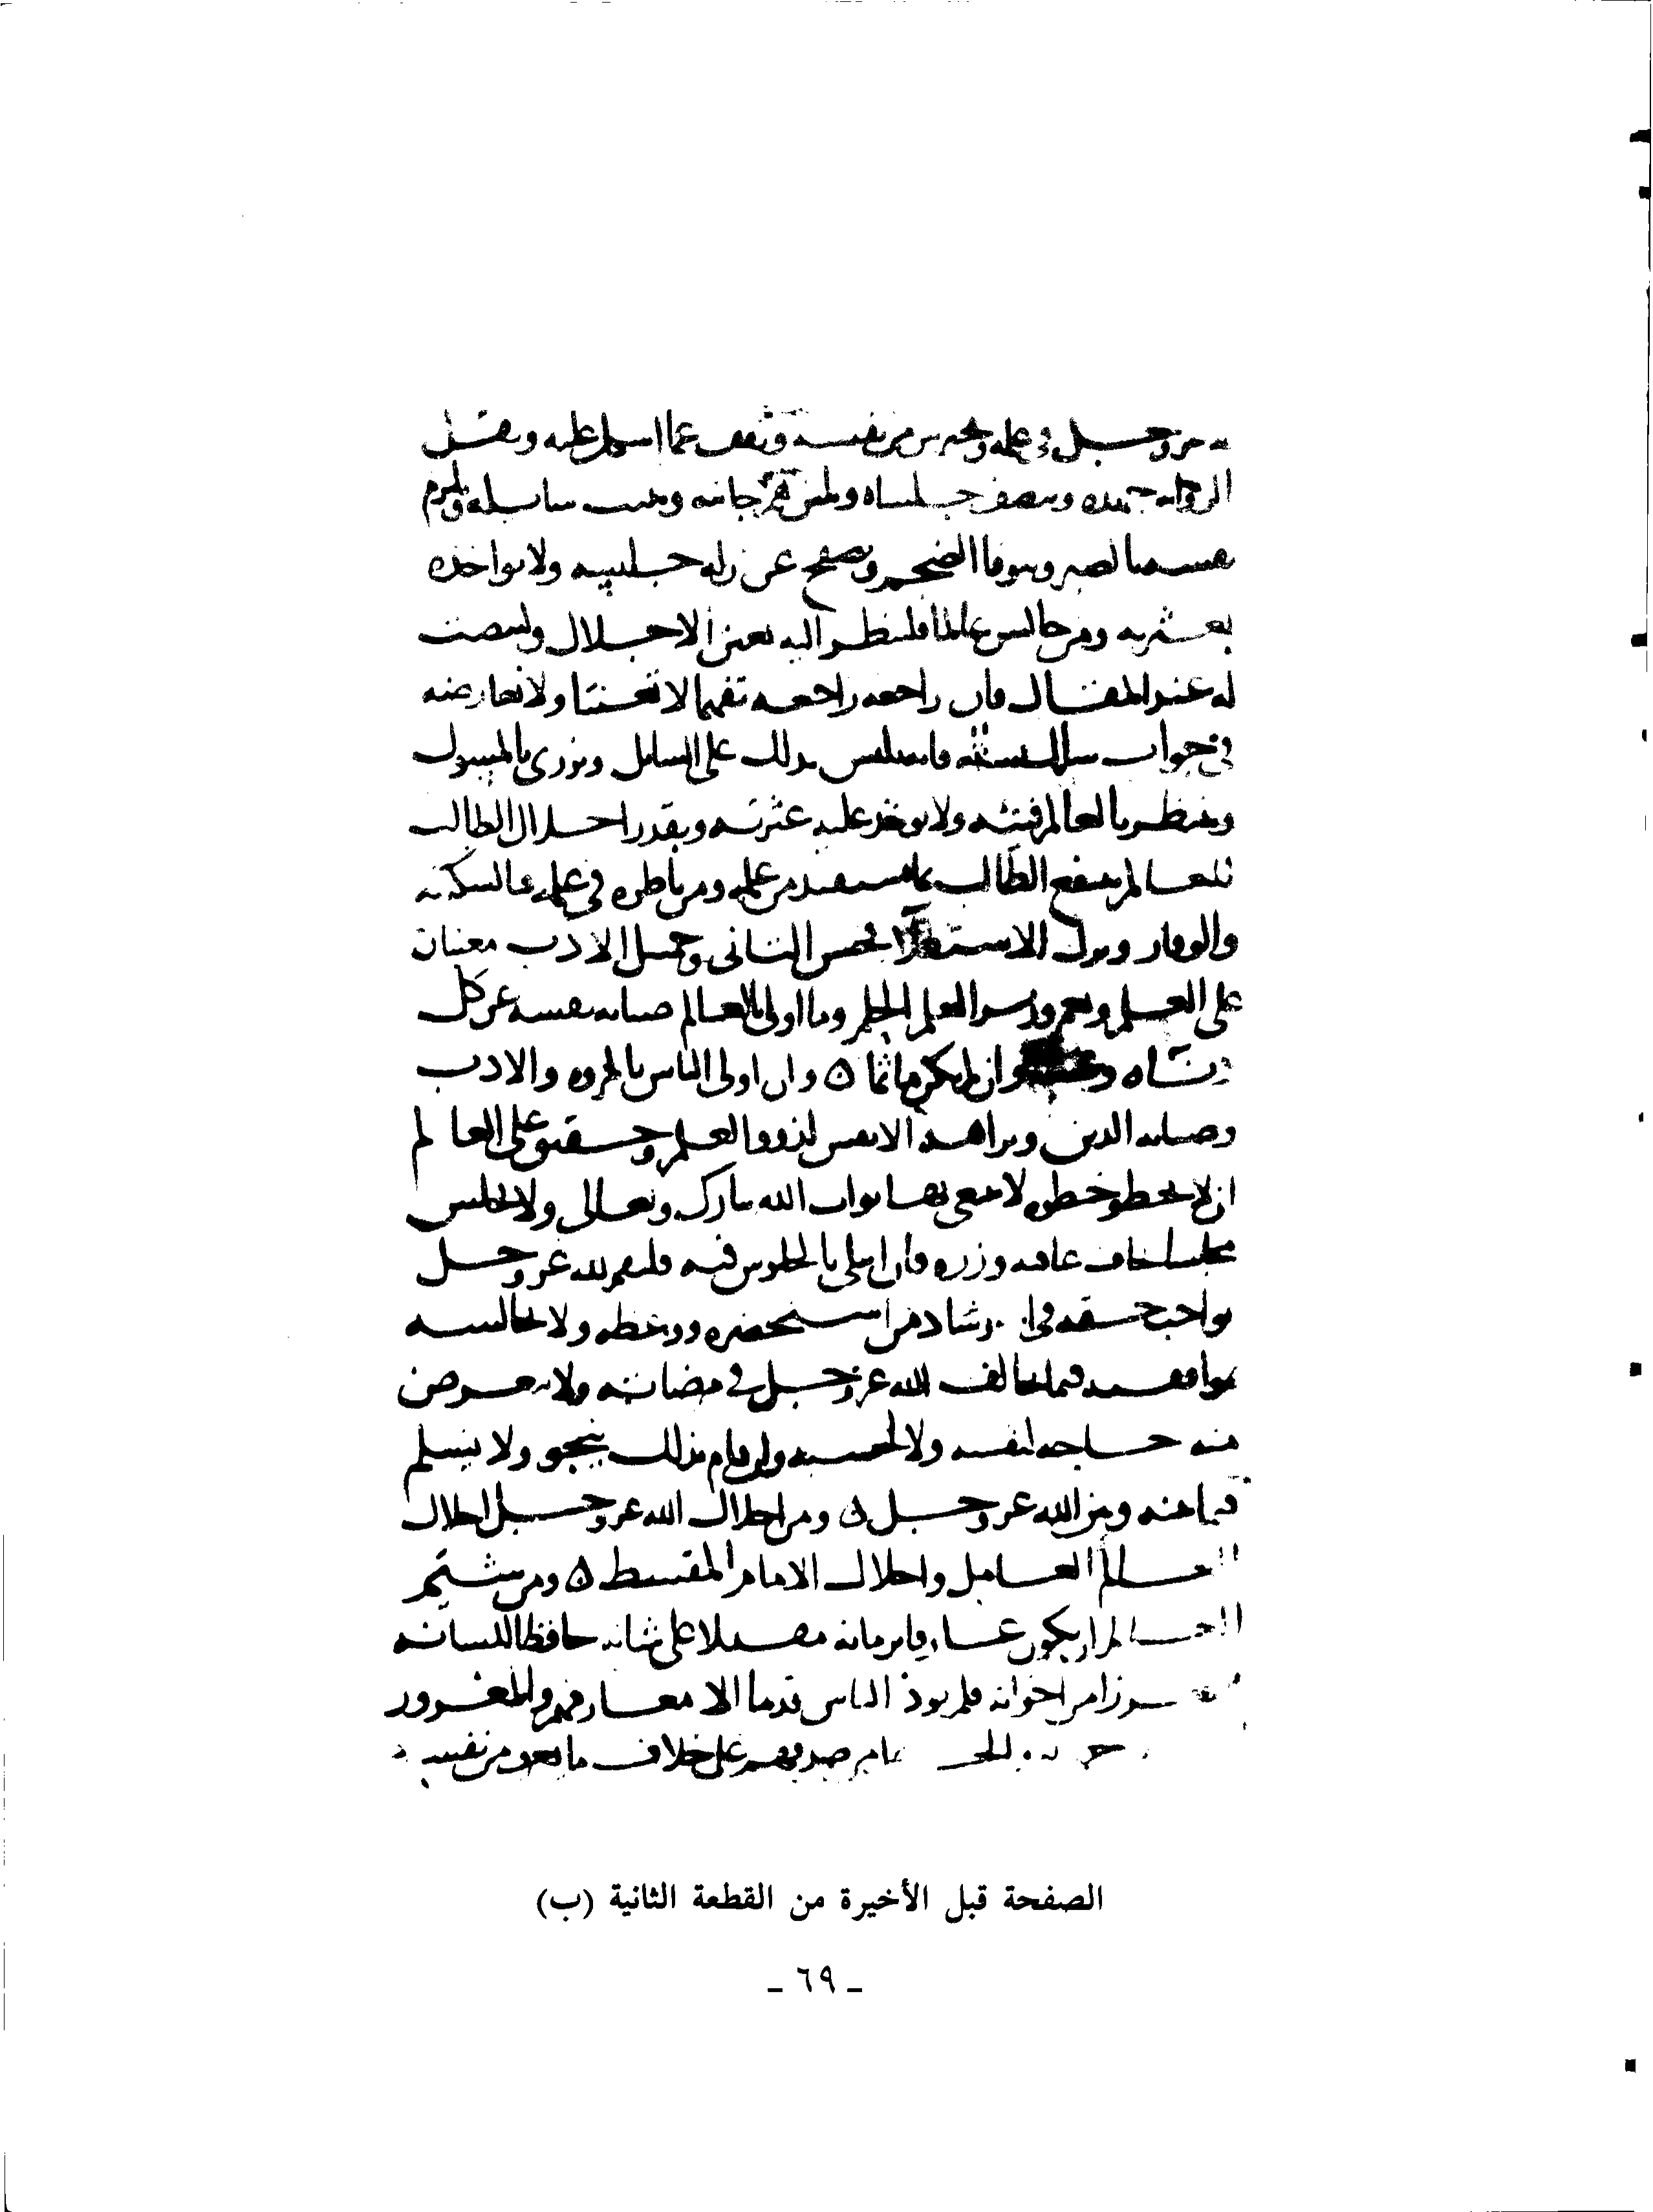 عز وجل في علمه ويحترس من نفسه ويقف عما اشكل عليه ويقل
الرواية جهده وينصف جلساه ويلين لهم جانبه سايله ويلزم
نفسه الصبر ويتوقا الضجر ويصفح عن زلة جليسه ولا يواخذه
بعثرته ومن جالس عالما فلينظر اليه بعين الاجلال ولينصت
له عند المقال فان راجعه راجعه تفهما لا تعنتا ولا يعارضه
في جواب سايل فان يلبس بذلك على السايل ويزري بالمسول
وينتظر بالعالم فيئته ولا يوخذ عليه عثرته وبقدر اجلال الطالب
للعالم ينتفع الطالب بما يستفيد من علمه ومن ناظره في علم فبالسكينة
والوقار وترك الاستعلا فحسن التاني وجميل الادب معينان
على العلم ونعم وزير العلم الحلم وما اولى بالعالم صيانة نفسه عن كل
دناه وان لم يكن ماثما ٥ وان اولى الناس بالمروه والادب
وصيانة الدين ونزاهة الانفس لذووا العلم وحقيق على العالم
ان لا يخطو خطوه لا يبتغي بها ثواب الله تبارك وتعالى ولا يجلس
مجلسا يخاف عاقبة وزره فان ابتلي بالجلوس فيه فليقم لله عز وجل
بواجب حقه في ارشاد من استحضره ووعظه ولا يجالسه
بموافقته فيما يخالف الله عز وجل في مرضاته ولا يتعرض
منه حاجه لنفسه ولا لحسبه ولو قام بذلك ينجو ولا يسلم
فيما منه وبين الله عز وجل ٥ ومن اجلال الله عز وجل اجلال
العالم العامل واجلال الامام المقسط ٥ ومن شيم
العالم ان يكون عارفا بزمانه مقبلا على شانه حافظا للسانه
متحرزا من اخوانه فلم يوذ الناس قدما الا معارفهم والمغرور
صديقهم على خلاف ما يعرف من نفسه
الصفحة قبل الأخيرة من القطعة الثانية (ب)
- ٦٩ -